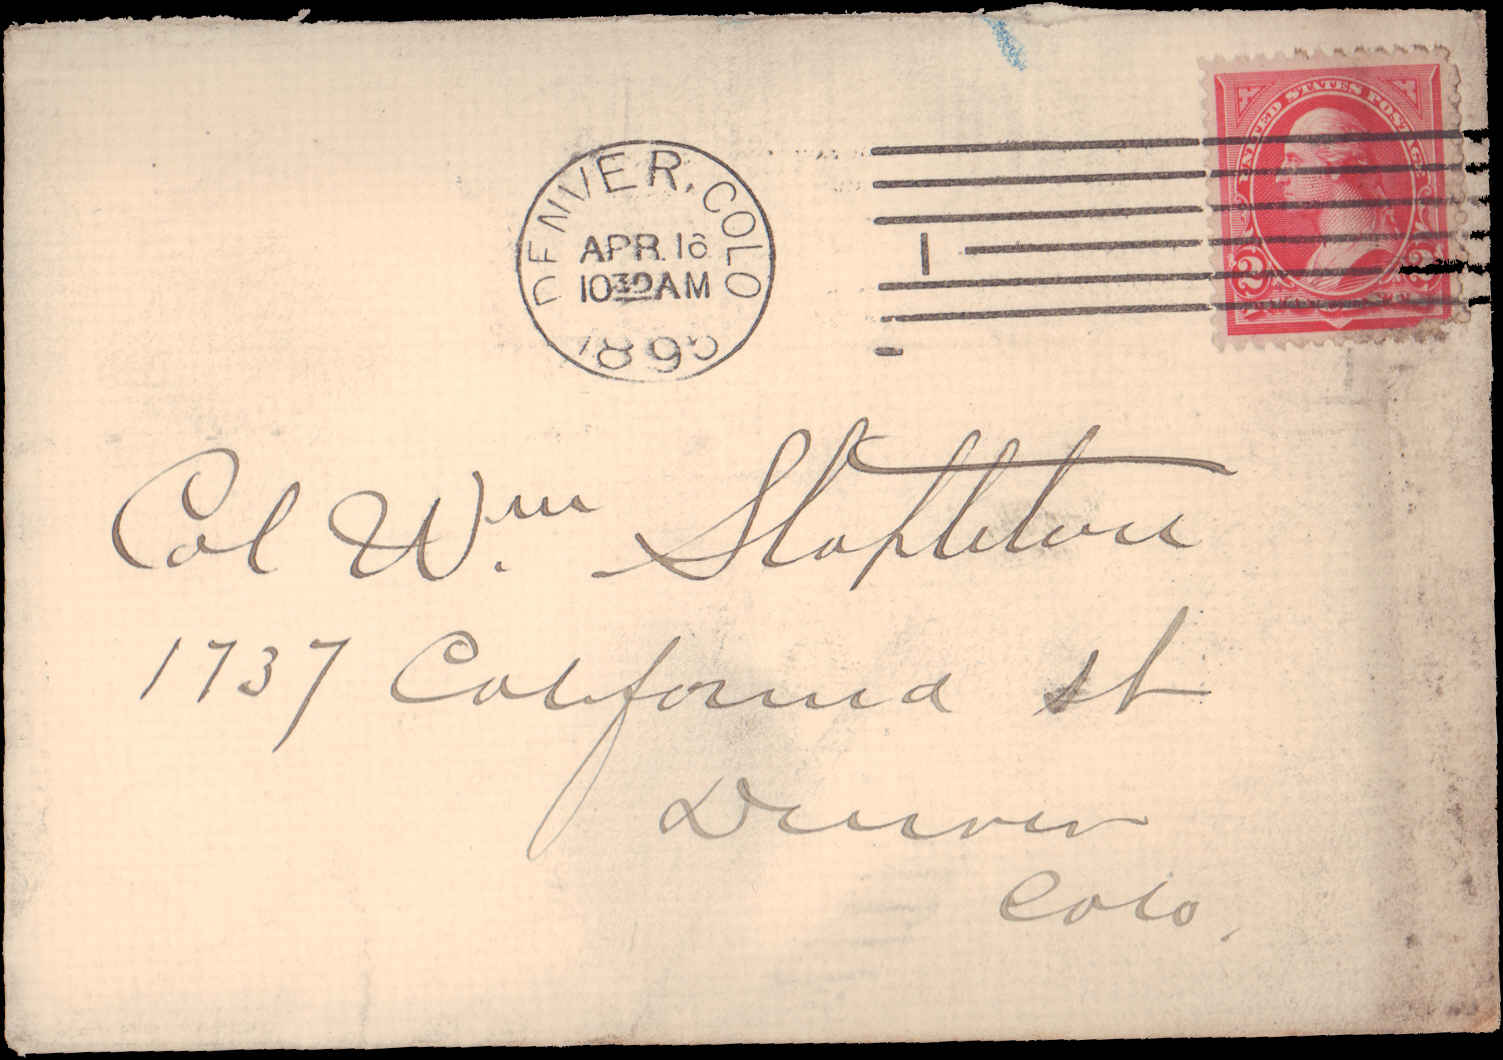 UNITED STATES POSTAGE
2 2
DENVER, COLO
APR. 16
10 30 AM
189
1
Col Wm. Stapleton
1737 California st
Denver
Colo.